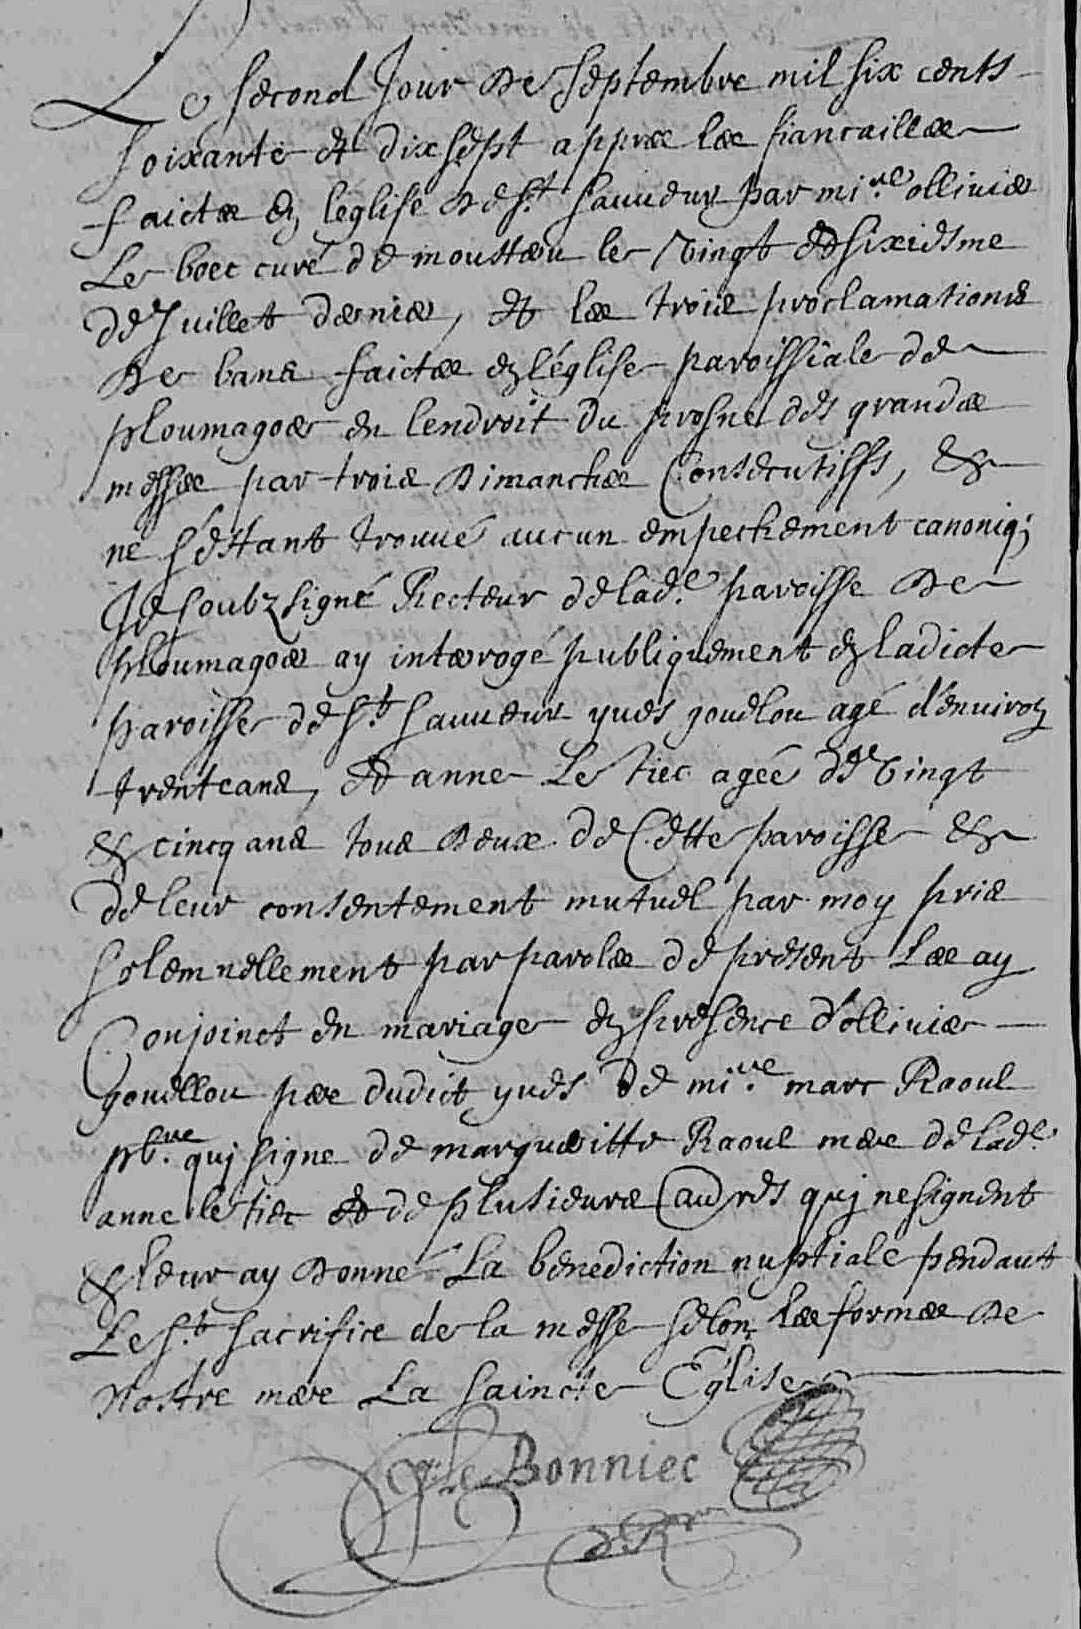 Le second Jour de septembre mil six cents
soixante et dix sept appres les fiancailles
faictes en leglise de St sauveur par mire ollivier
Le boec curé de mousteru le vingt et sixiesme
de Juillet dernier, et les trois proclamations
de bans faictes en l'église paroissiale de
ploumagoer en lendroit du prosne des grandes
messes par trois dimanches Consecutiffs, &
ne s'estant trouvé aucun empechement canoniq;
Je soubzsigné Recteur de lade paroisse de
ploumagoer ay interrogé publiquement en ladicte
paroisse de St sauveur yves gouelou agé d'environ
trente ans, et anne Le tiec agée de vingt
& cincq ans tous deux de Cette paroisse &
de leur consentement mutuel par moy pris
solemnellement par paroles de present Les ay
Conjoinct en mariage en presence d'ollivier
gouellou pere dudict yves de mire marc Raoul
pbre quj signe de margueritte Raoul mere de lade
anne le tiec et de plusieurs autres quj ne signent
& leur ay donné La benediction nuptiale pendant
Le St sacrifice de la messe selon les formes de
Nostre mere La saincte Eglise
le Bonniec
Rr